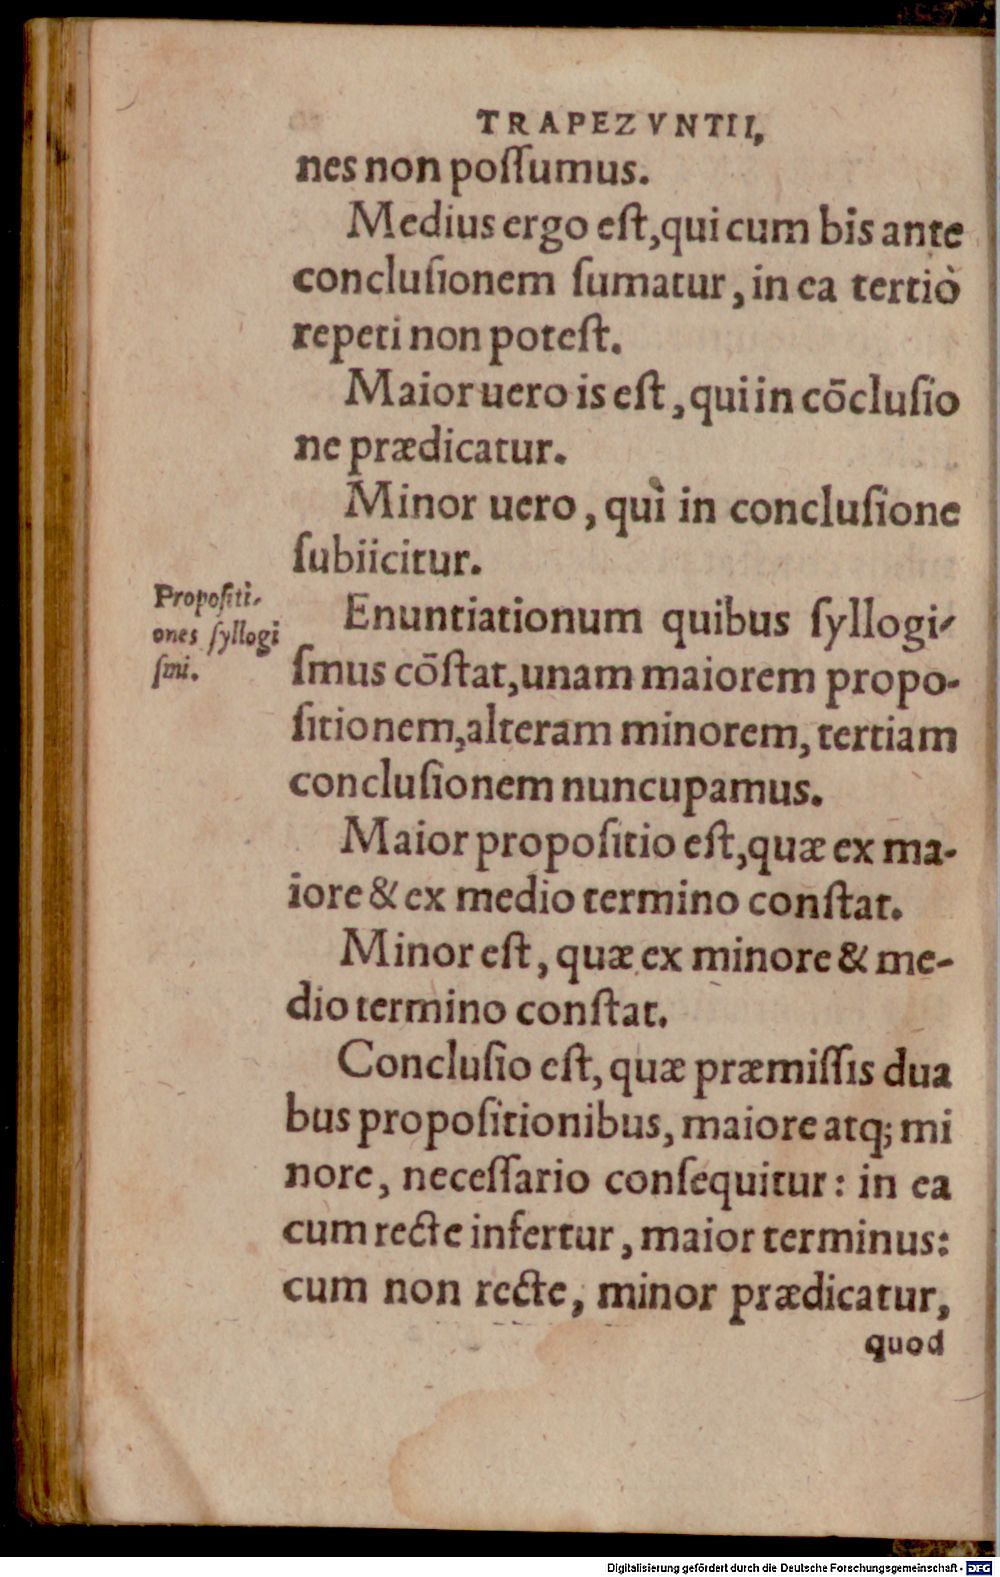 TRAPEZVNTII,
nes non poſſumus.
Medius ergo eſt, qui cum bis ante
concluſionem ſumatur, in ea tertiò
repeti non poteſt.
Maior uero is eſt, qui in cõcluſio
ne prædicatur.
Minor uero, qui in concluſione
ſubiicitur.
Propoſiti-
ones ſyllogi
ſmi.
Enuntiationum quibus ſyllogi-
ſmus cõſtat, unam maiorem propo-
ſitionem, alteram minorem, tertiam
concluſionem nuncupamus.
Maior propoſitio eſt, quæ ex ma-
iore & ex medio termino conſtat.
Minor eſt, quæ ex minore & me-
dio termino conſtat.
Concluſio eſt, quæ præmiſſis dua
bus propoſitionibus, maiore atq; mi
nore, neceſſario conſequitur: in ea
cum recte infertur, maior terminus:
cum non recte, minor prædicatur,
quod
Digitalisierung gefördert durch die Deutsche Forschungsgemeinschaft - DFG